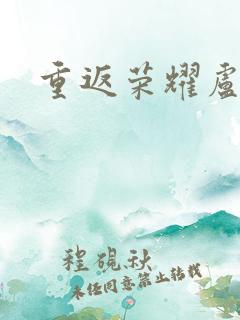 重返荣耀盧
程砚秋
未经同意禁止转载